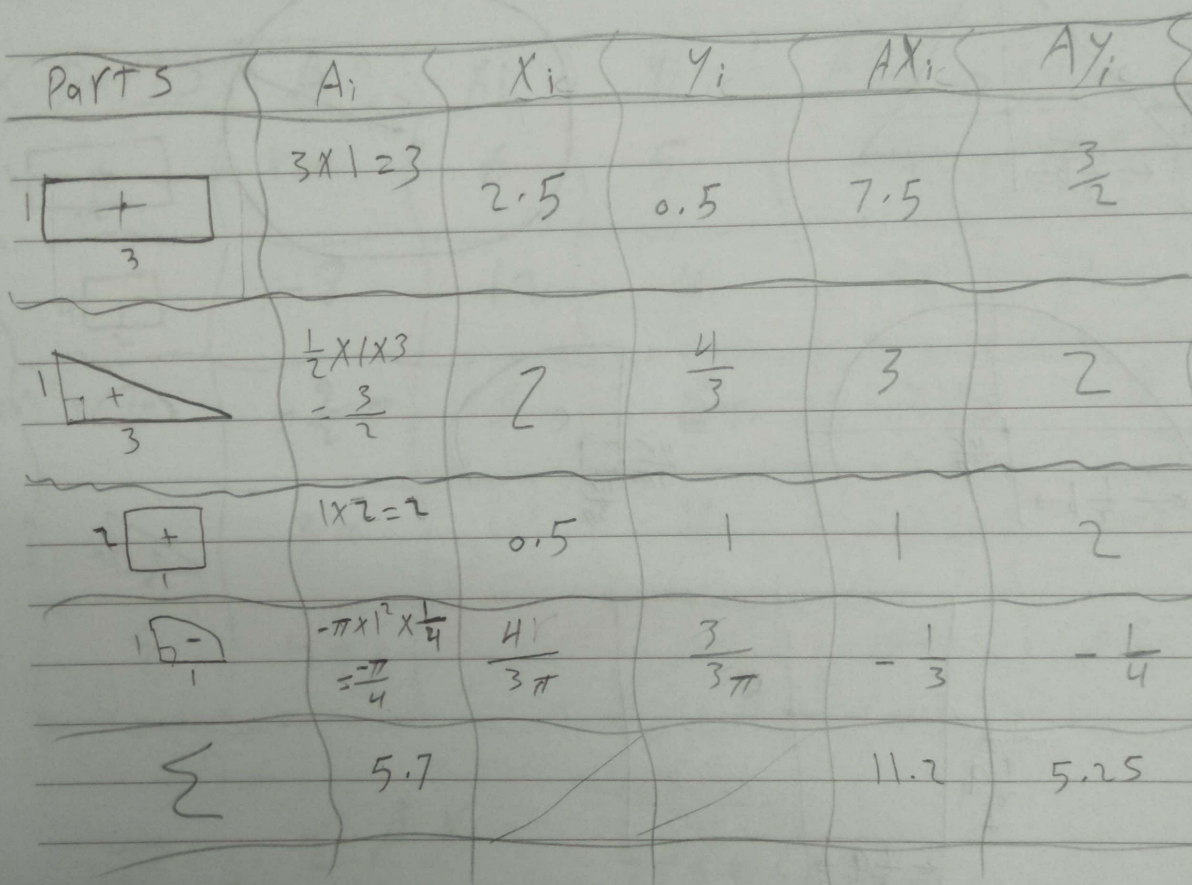 Parts Ai Xi Yi AXi AYi
1 3 3×1=3 2.5 0.5 7.5 3/2
1 3 1/2×1×3 = 3/2 2 4/3 3 2
2 1 1×2=2 0.5 1 1 2
1 1 -π×1²×1/4 = -π/4 41/3π 3/3π -1/3 -1/4
Σ 5.7 11.2 5.25